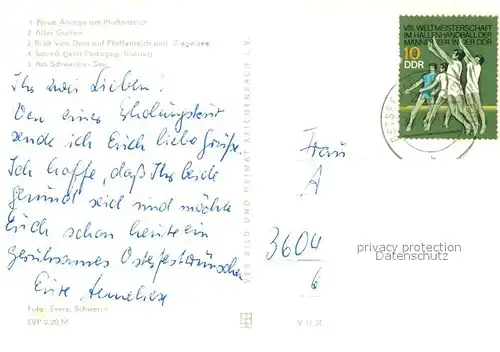 1 Neue Anlage am Pfaffenteich
2 Alter Garten
3 Blick vom Dom auf Pfaffenteich und Ziegelsee
4 Schloß (jetzt Pädagog. Institut)
5 Am Schweriner See
Ihr zwei Lieben!
Von einer Erholungskur
sende ich Euch liebe Grüße.
Ich hoffe, daß Ihr beide
gesund seid und möchte
Euch schon heute ein
geruhsames Osterfest wünschen
Eure Anneliese
Foto: Evers, Schwerin
EVP 0,20 M
VEB BILD UND HEIMAT REICHENBACH I. V.
V 11 50
VIII. WELTMEISTERSCHAFT
IM HALLENHANDBALL DER
MÄNNER 1974 IN DER DDR
10
DDR
Frau
A
3604
6
privacy protection
Datenschutz